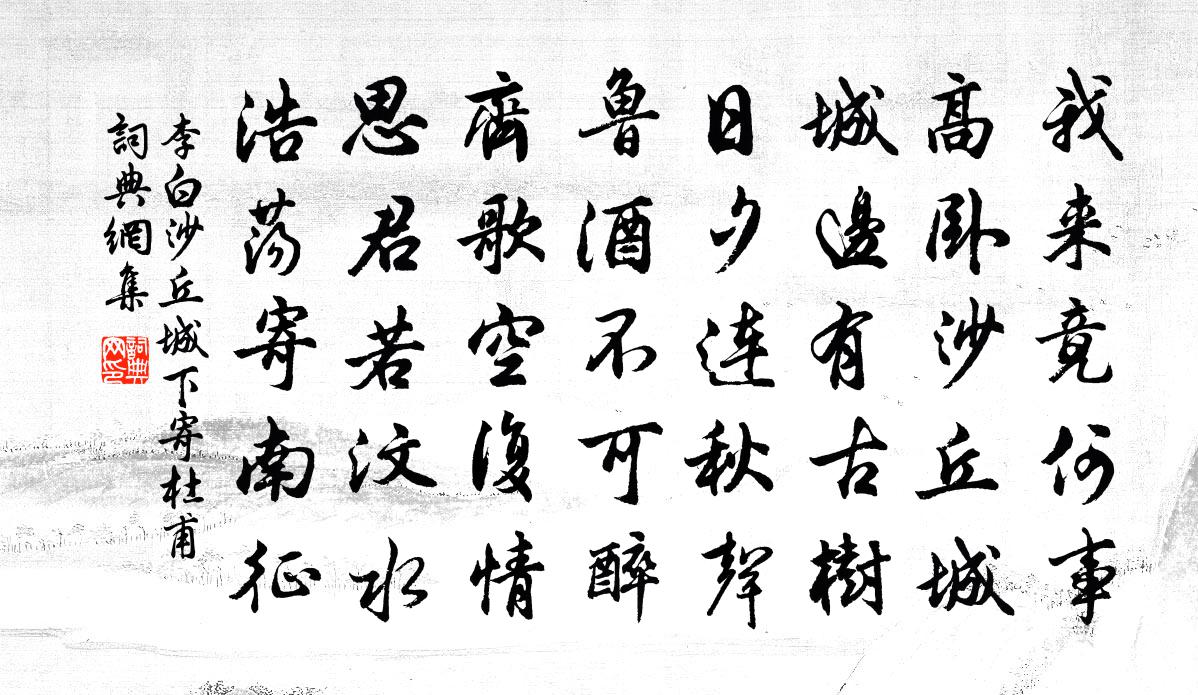 我来竟何事
高卧沙丘城
城邊有古樹
日夕连秋聲
魯酒不可醉
齊歌空復情
思君若汶水
浩荡寄南征
李白沙丘城下寄杜甫
詞典網集
詞典网印